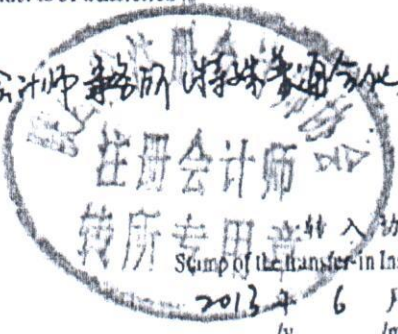 会计师事务所（特殊普通合伙
注册会计师
转所专用章
转入协
Stamp of the transfer-in Ins
2013年 6 月
/y /m